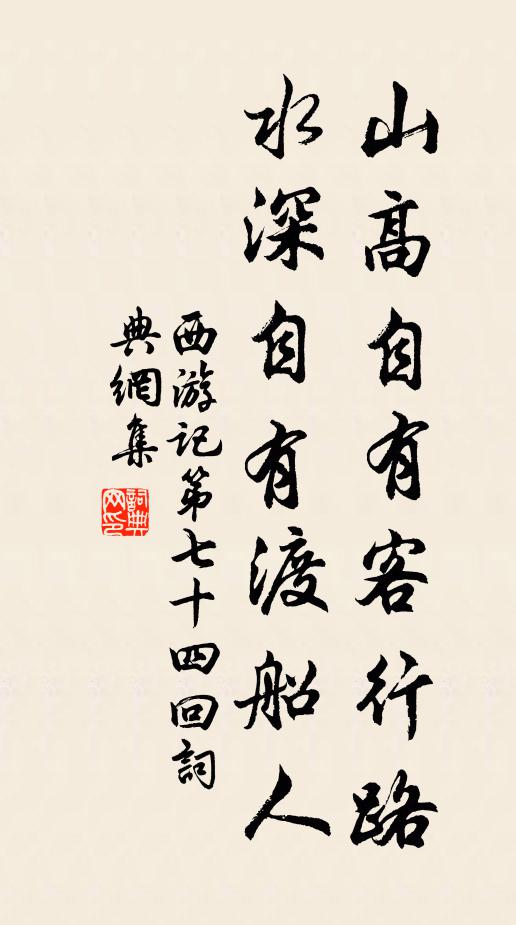 山高自有客行路
水深自有渡船人
西游记第七十四回詞
典網集
詞典
网印